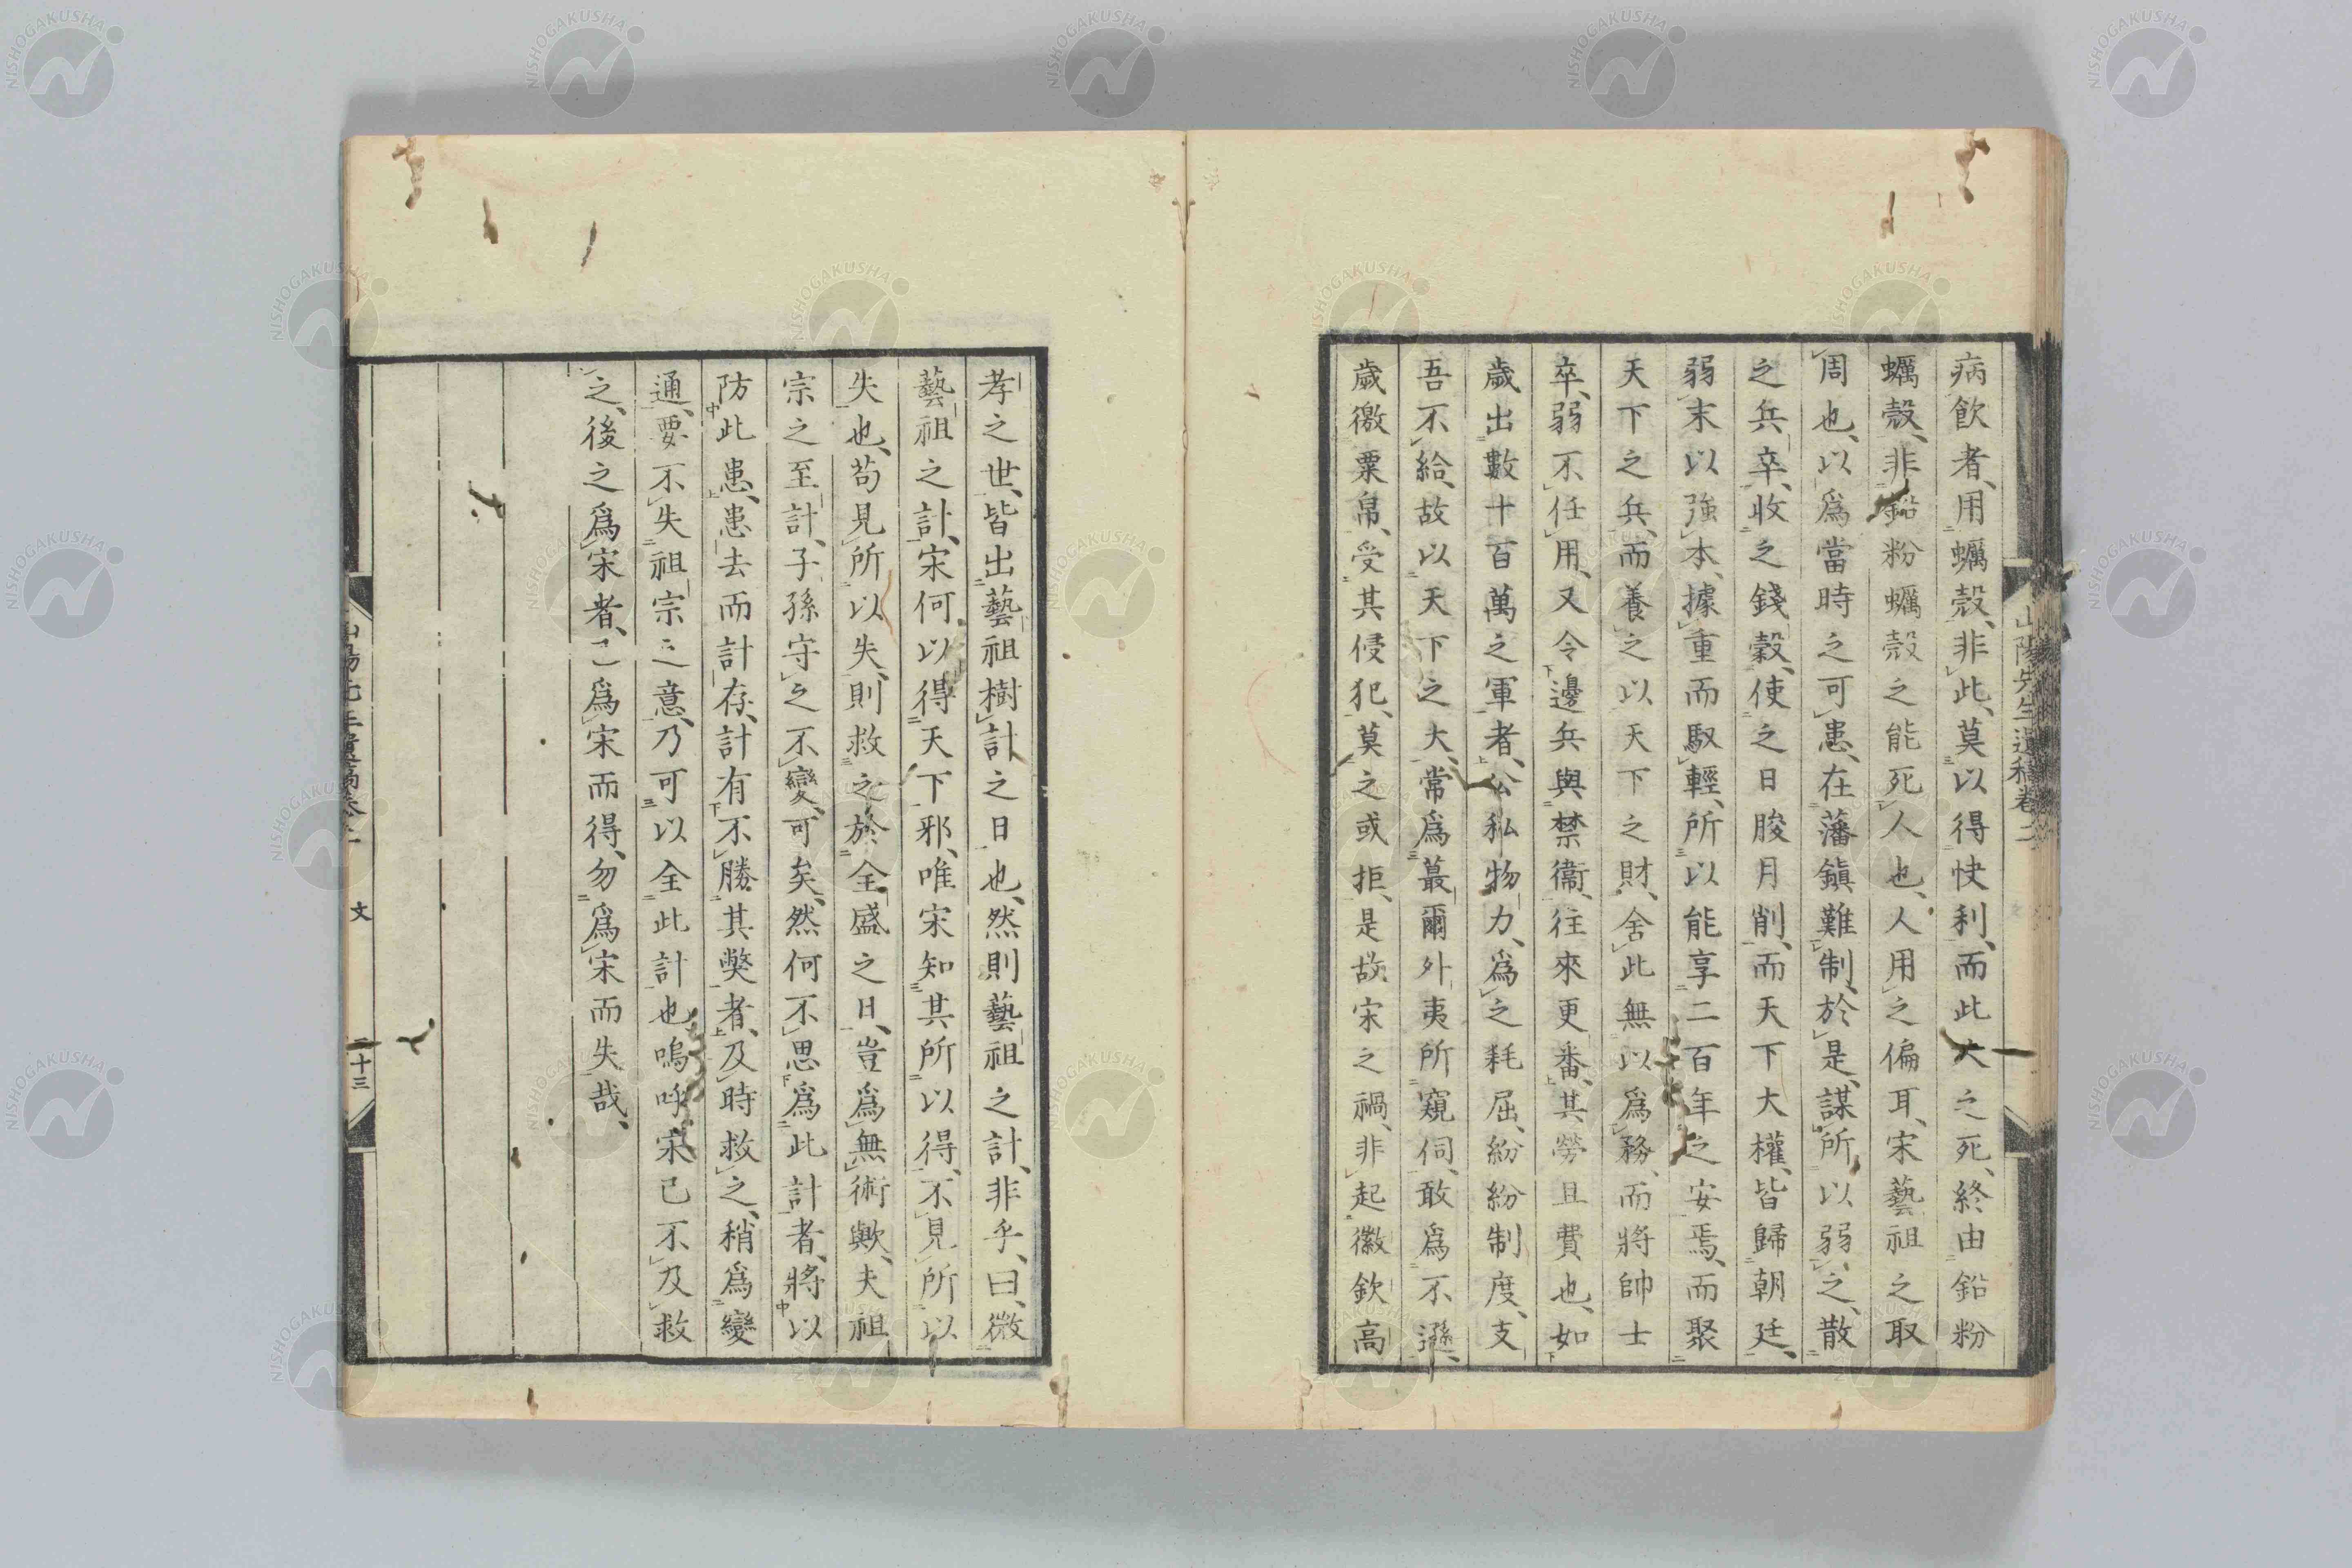 山陽先生遺稿卷二
病飲者、用蠣殼、非此、莫以得快利、而此大之死、終由鉛粉
蠣殼、非鉛粉蠣殼之能死人也、人用之偏耳、宋藝祖之取
周也、以爲當時之可患、在藩鎭難制、於是、謀所以弱之、散
之兵卒、收之錢穀、使之日朘月削、而天下大權、皆歸朝廷、
弱末以強本、據重而馭輕、所以能享二百年之安焉、而聚
天下之兵、而養之以天下之財、舍此無以爲務、而將帥士
卒、弱不任用、又令邊兵與禁衞、往來更番、其勞且費也、如
歲出數十百萬之軍者、公私物力、爲之耗屈、紛紛制度、支
吾不給、故以天下之大、常爲蕞爾外夷所窺伺、敢爲不遜、
歲徼粟帛、受其侵犯、莫之或拒、是故宋之禍、非起徽欽高
孝之世、皆出藝祖樹計之日也、然則藝祖之計、非乎、曰、微
藝祖之計、宋何以得天下邪、唯宋知其所以得、不見所以
失也、苟見所以失、則救之於全盛之日、豈爲無術歟、夫祖
宗之至計、子孫守之不變、可矣、然何不思爲此計者、將以
防此患、患去而計存、計有不勝其獘者、及時救之、稍爲變
通、要不失祖宗之意、乃可以全此計也嗚呼宋已不及救
之、後之爲宋者、已爲宋而得、勿爲宋而失哉、
文
二十三